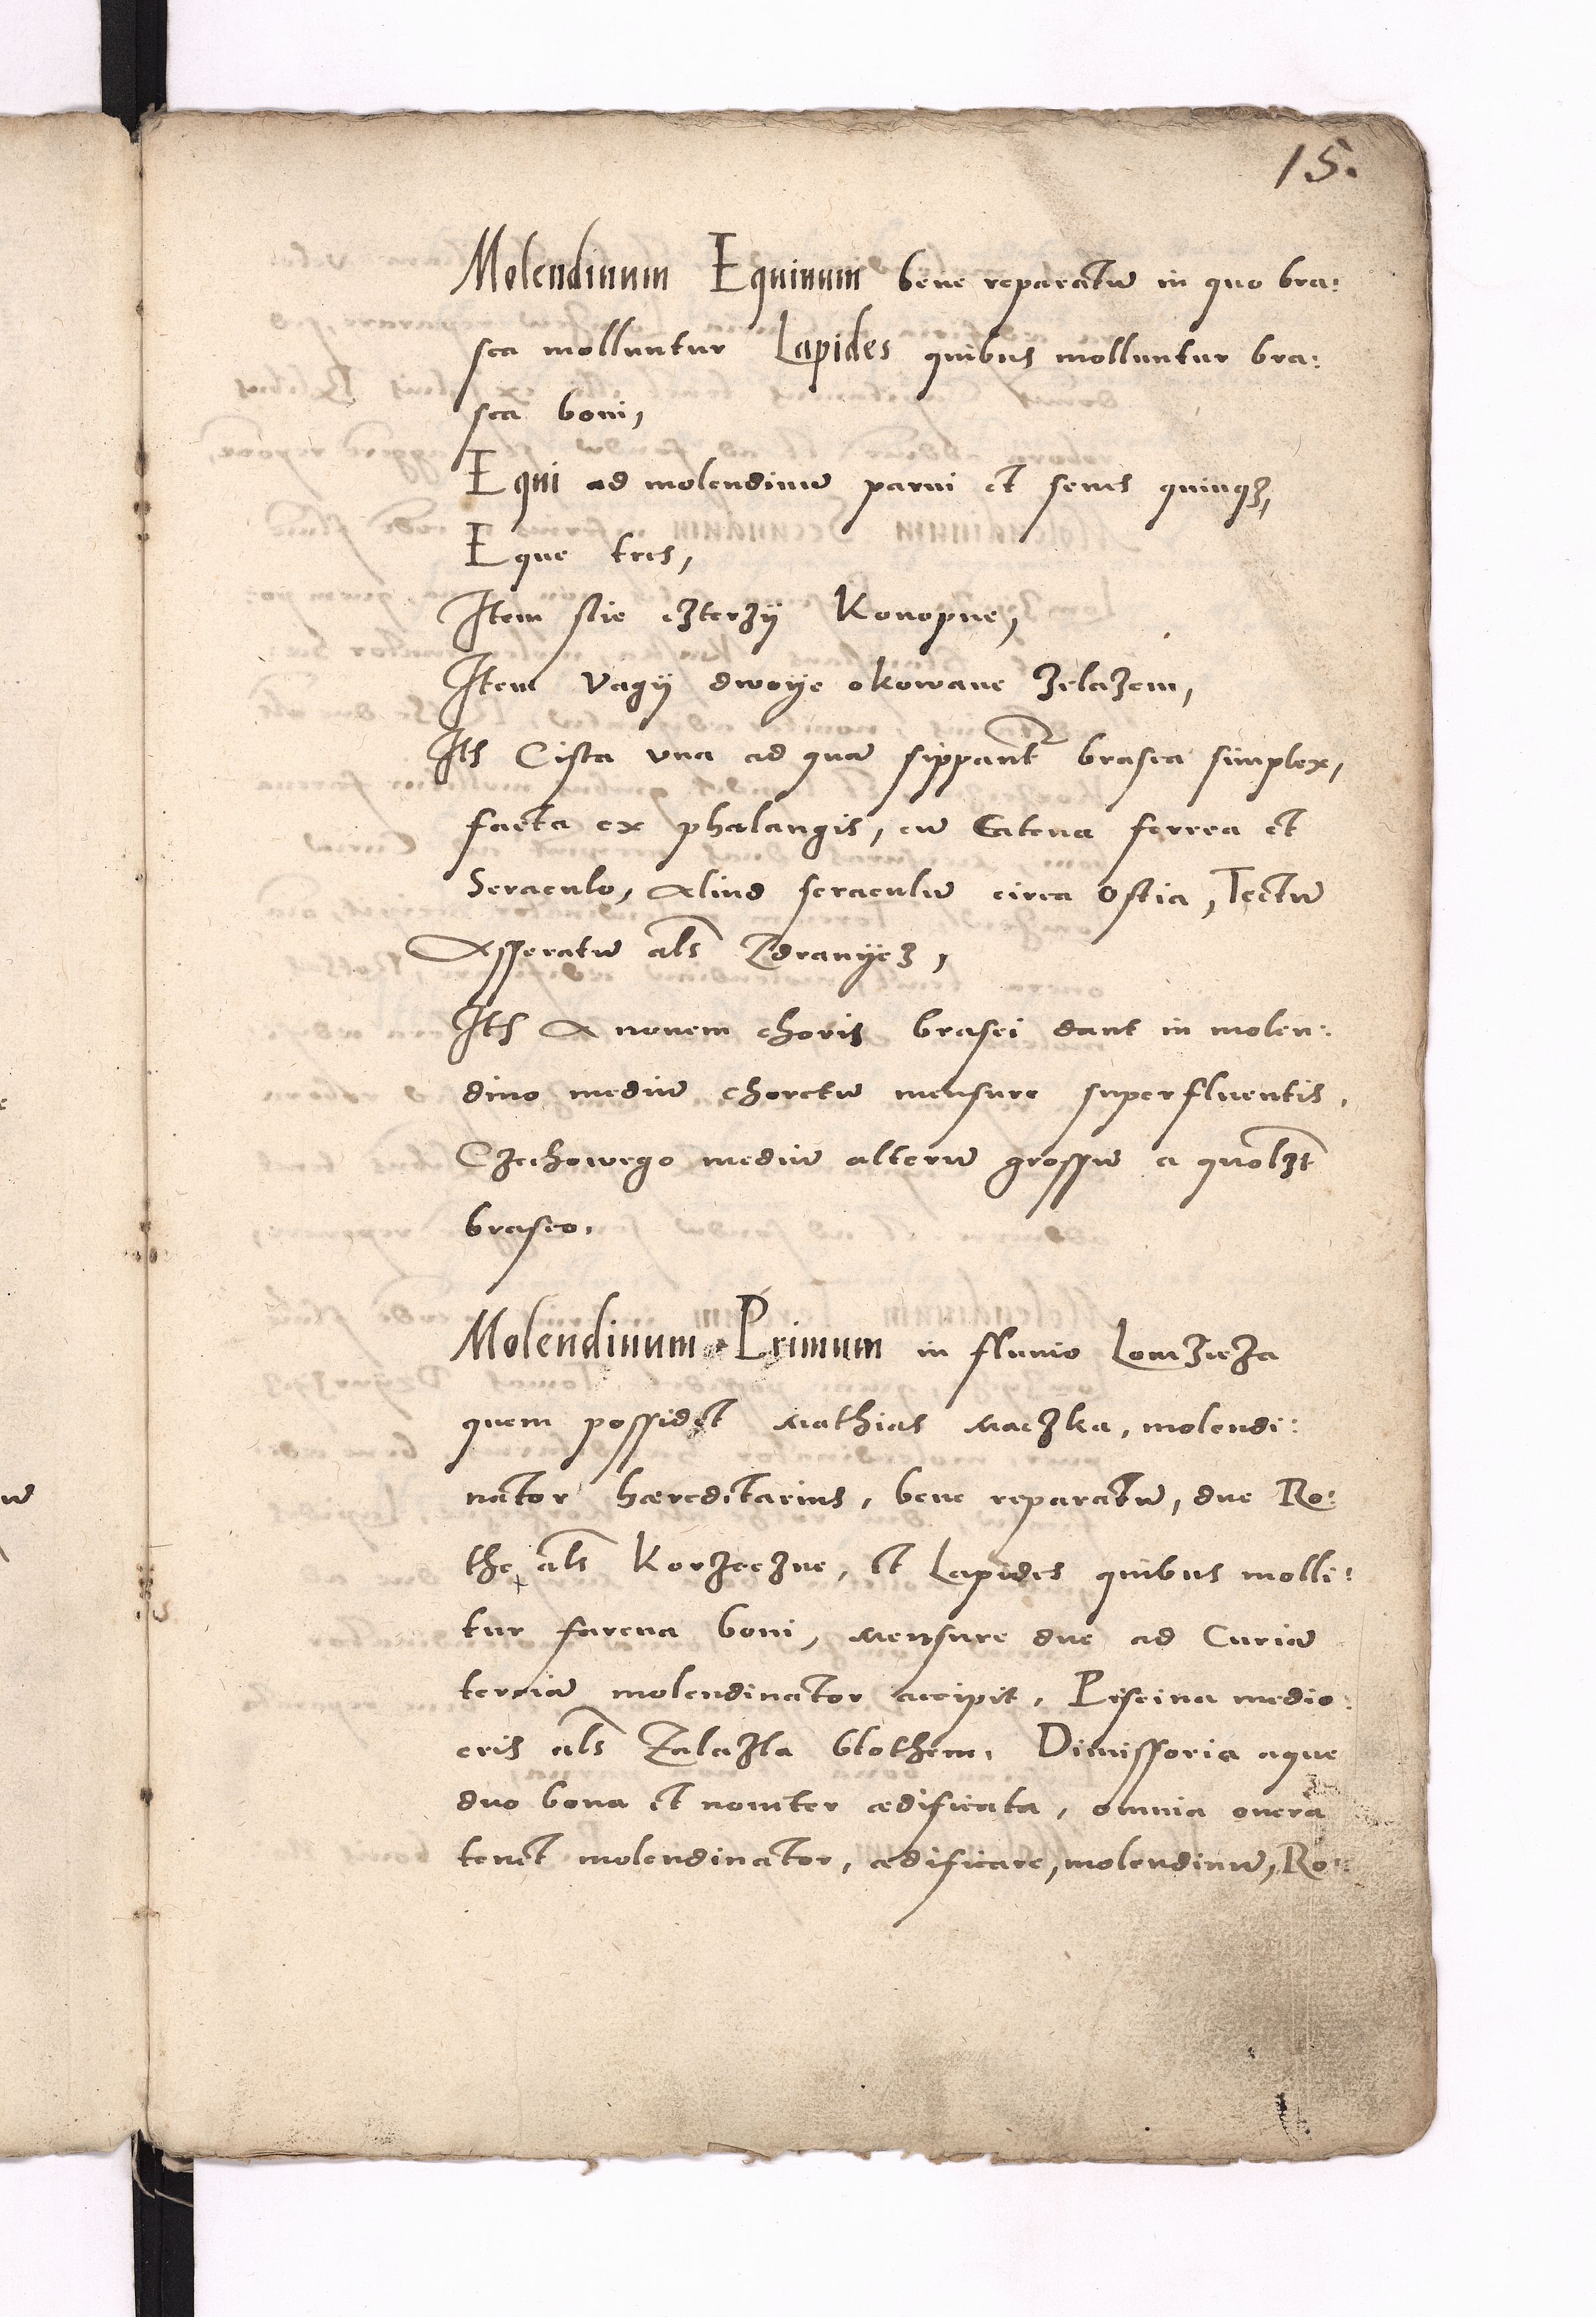 15.
Molendinum Equinum bene reparatū in quo bra:
sea molluntur Lapides quibus molluntur bra:
sea boni,
Equi ad molendinū parui et senes quinqʒ,
Eque tres,
Item slie czterzÿ Konopne,
Item Vagÿ dwoÿe okowane zelazem,
Itē Cista vna ad quā sippant̄ brasea simplex,
facta ex phalangis, cū Catena ferrea et
Seraculo, Aliud seraculū circa Ostia, Tectū
Asseratū als̄ Zdranÿcz,
Itē A nouem choris brasei dant in molen:
dino mediū choretū mensure superfluentis,
Czechowego mediū alterū grossū a quolꝫt
braseo.
Molendinum Primum in fluuio Lomzicza
quem possidet Mathias Maczka, molendi:
nator hæreditarius, bene reparatū, due Ro:
the als̄ Korzeczne, et Lapides quibus molli:
tur farena boni, Mensure due ad Curiā
terciā molendinator accipit, Piscina medio:
cris als̄ Zalazla blothem, Dimissoria aque
duo bona et nouiter ædificata, omnia onera
tenet molendinator, ædificare, molendinū, Ro: